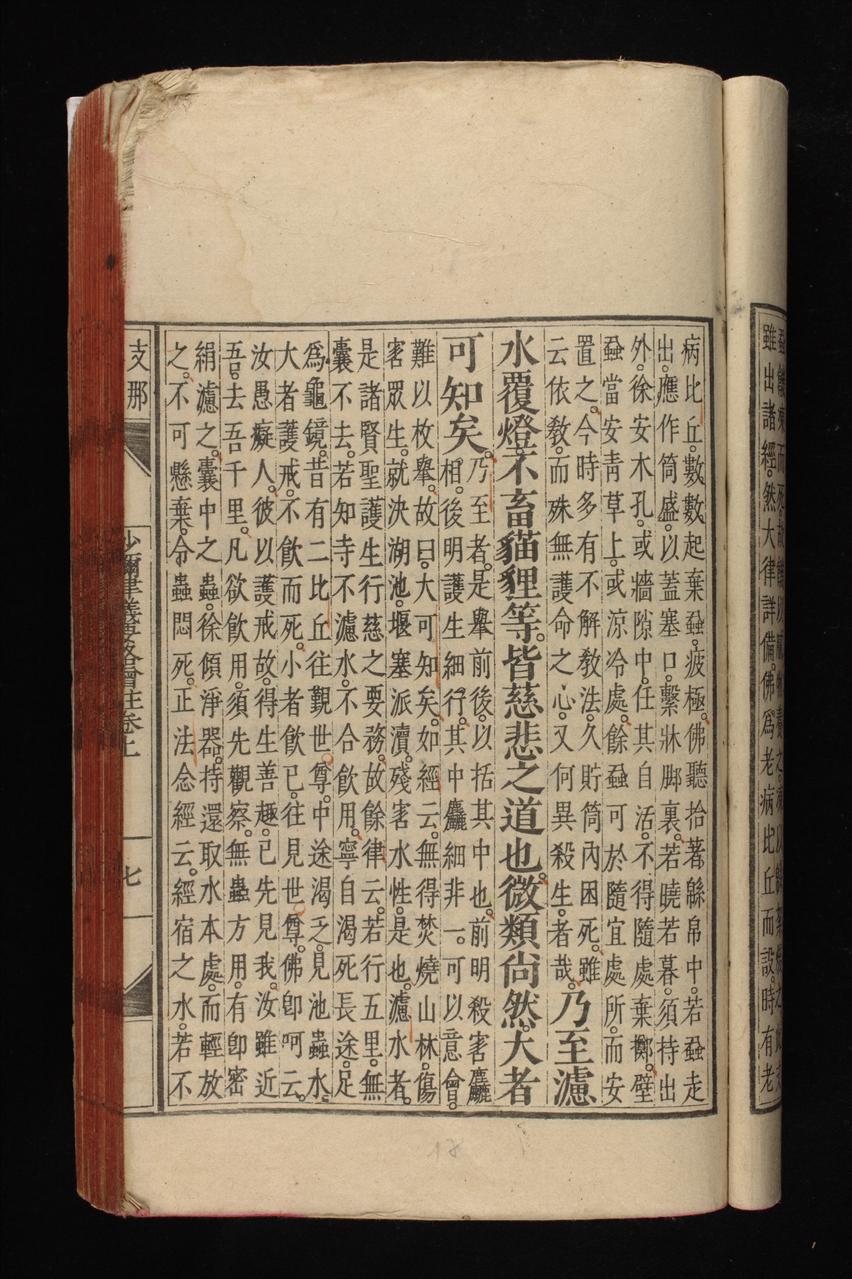 雖出諸經。然大律詳備。佛爲老病比丘而設。時有老
病比丘。數數起棄蝨。疲極。佛聽拾著緜帛中。若蝨走
出。應作筒盛。以蓋塞口。繫牀脚裏。若曉若暮。須持出
外。徐安木孔。或牆隙中。任其自活。不得隨處棄擲。壁
蝨當安靑草上。或凉冷處。餘蝨可於隨宜處所。而安
置之。今時多有不解教法。久貯筒內困死。雖
云依教。而殊無護命之心。又何異殺生者哉。
乃至濾
水覆燈。不畜貓貍等。皆慈悲之道也。微類尙然。大者
可知矣。
乃至者。是擧前後。以括其中也。前明殺害麤
相。後明護生細行。其中麤細非一。可以意會。
難以枚擧。故曰。大可知矣。如經云。無得焚燒山林。傷
害眾生。就決湖池。堰塞派瀆。殘害水性。是也。濾水者。
是諸賢聖護生行慈之要務。故餘律云。若行五里。無
囊不去。若知寺不濾水。不合飮用。寧自渴死長途。足
爲龜鏡。昔有二比丘往覲世尊。中途渴乏。見池蟲水。
大者護戒。不飮而死。小者飮已。往見世尊。佛卽呵云。
汝愚癡人。彼以護戒故。得生善趣。已先見我。汝雖近
吾。去吾千里。凡欲飮用。須先觀察。無蟲方用。有卽密
絹濾之。囊中之蟲。徐傾淨器。持還取水本處。而輕放
之。不可懸棄。令蟲悶死。正法念經云。經宿之水。若不
支那
沙彌律儀要略增註卷上
七
18